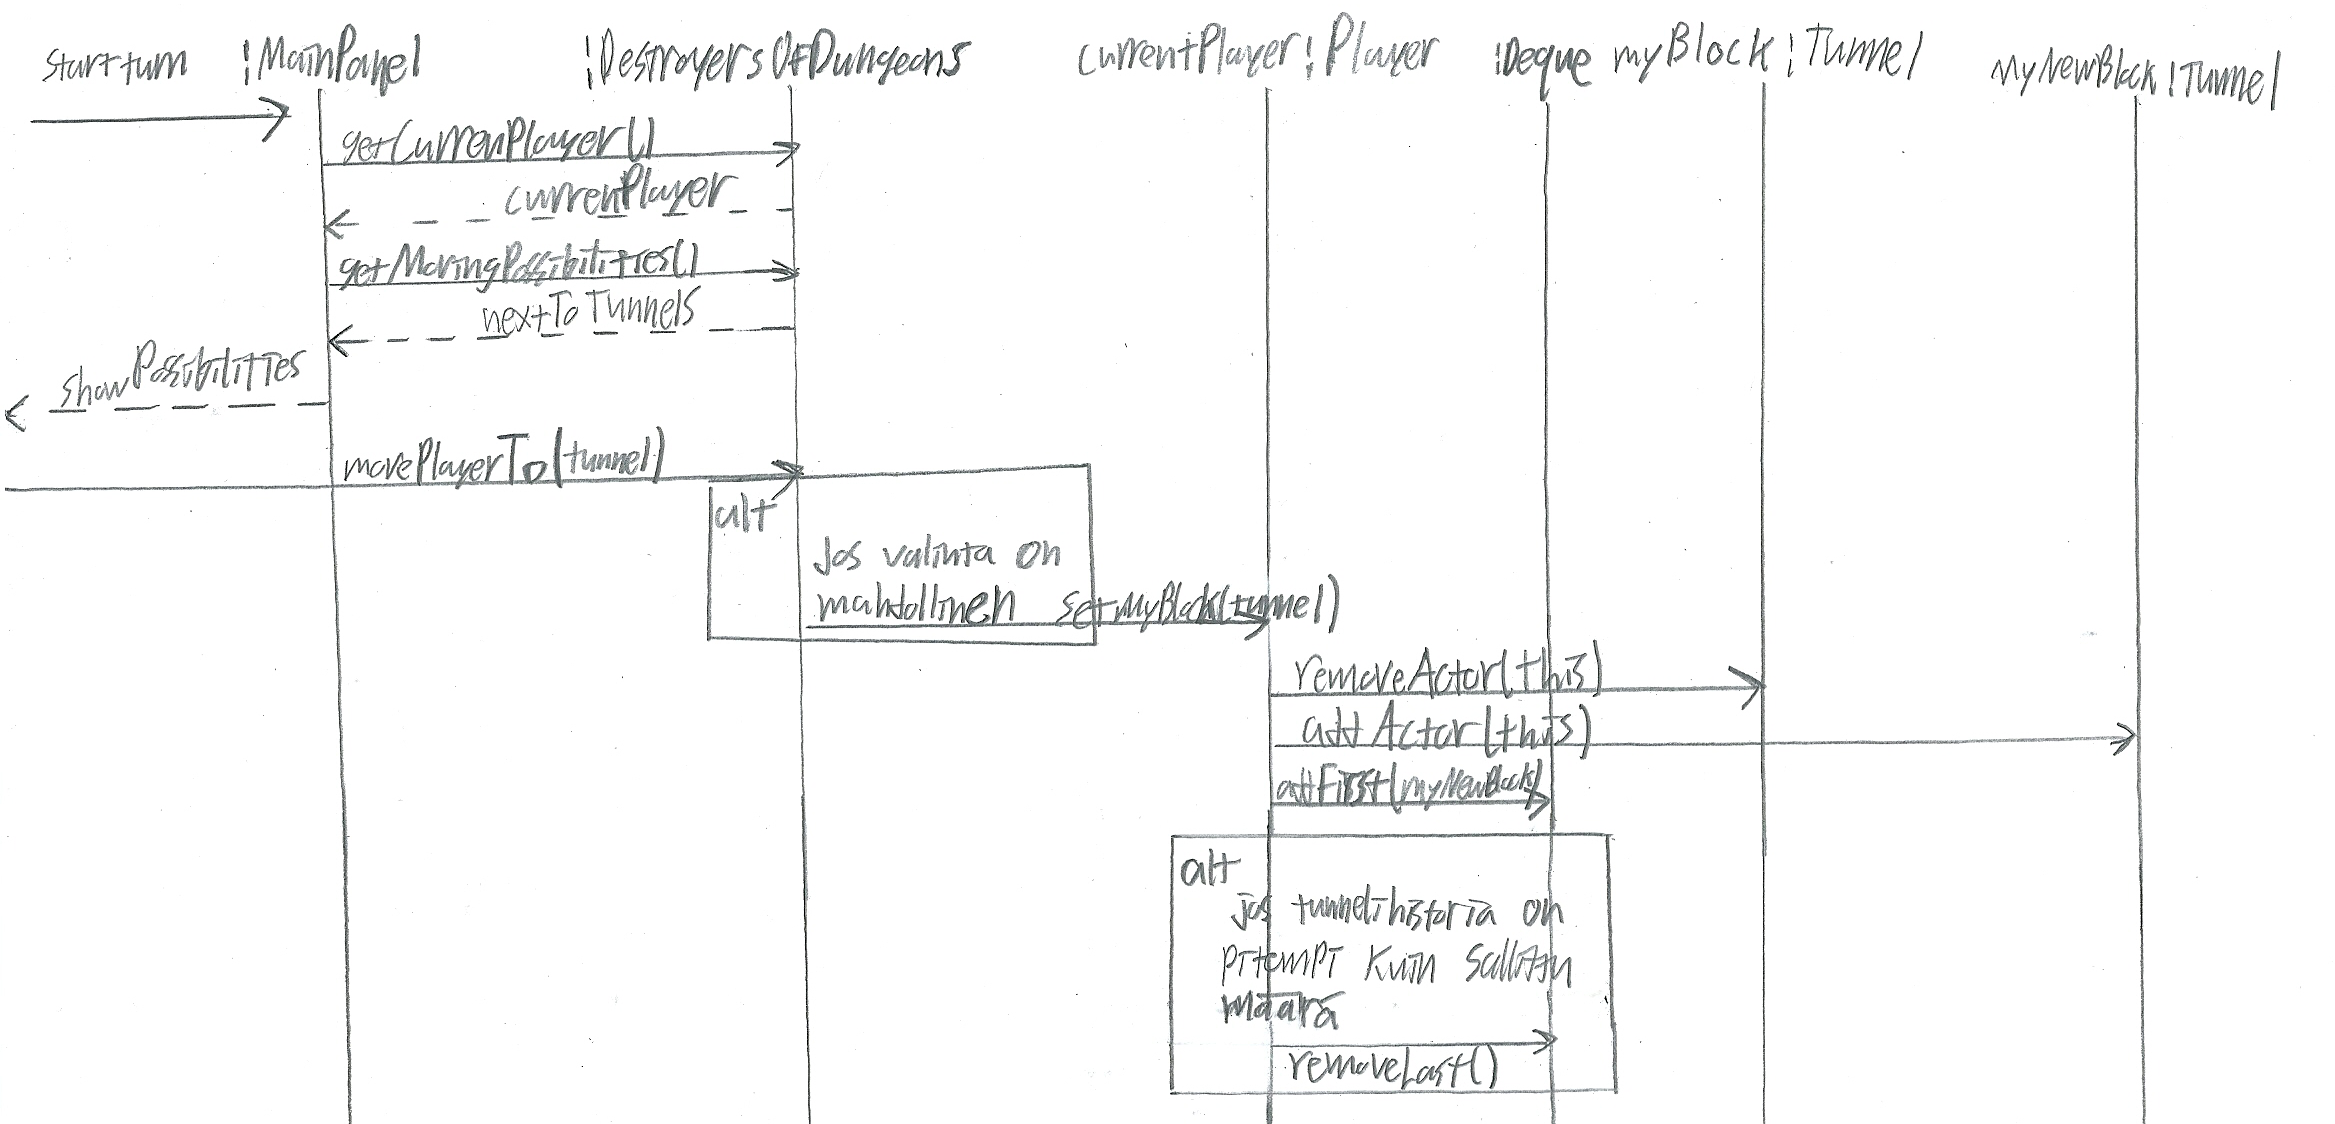 Start turn :MainPanel :DestroyersOfDungeons currentPlayer:Player :Deque myBlock:Tunnel MyNewBlock:Tunnel
getCurrenPlayer()
currenPlayer
getMovingPossibilities()
nextToTunnels
showPossibilities
movePlayerTo(tunnel)
alt
jos valinta on
mahdollinen setMyBlock(tunnel)
removeActor(this)
addActor(this)
addFirst(myNewBlock)
alt
jos tunnelihistoria on
pitempi kuin sallittu
määrä
removeLast()